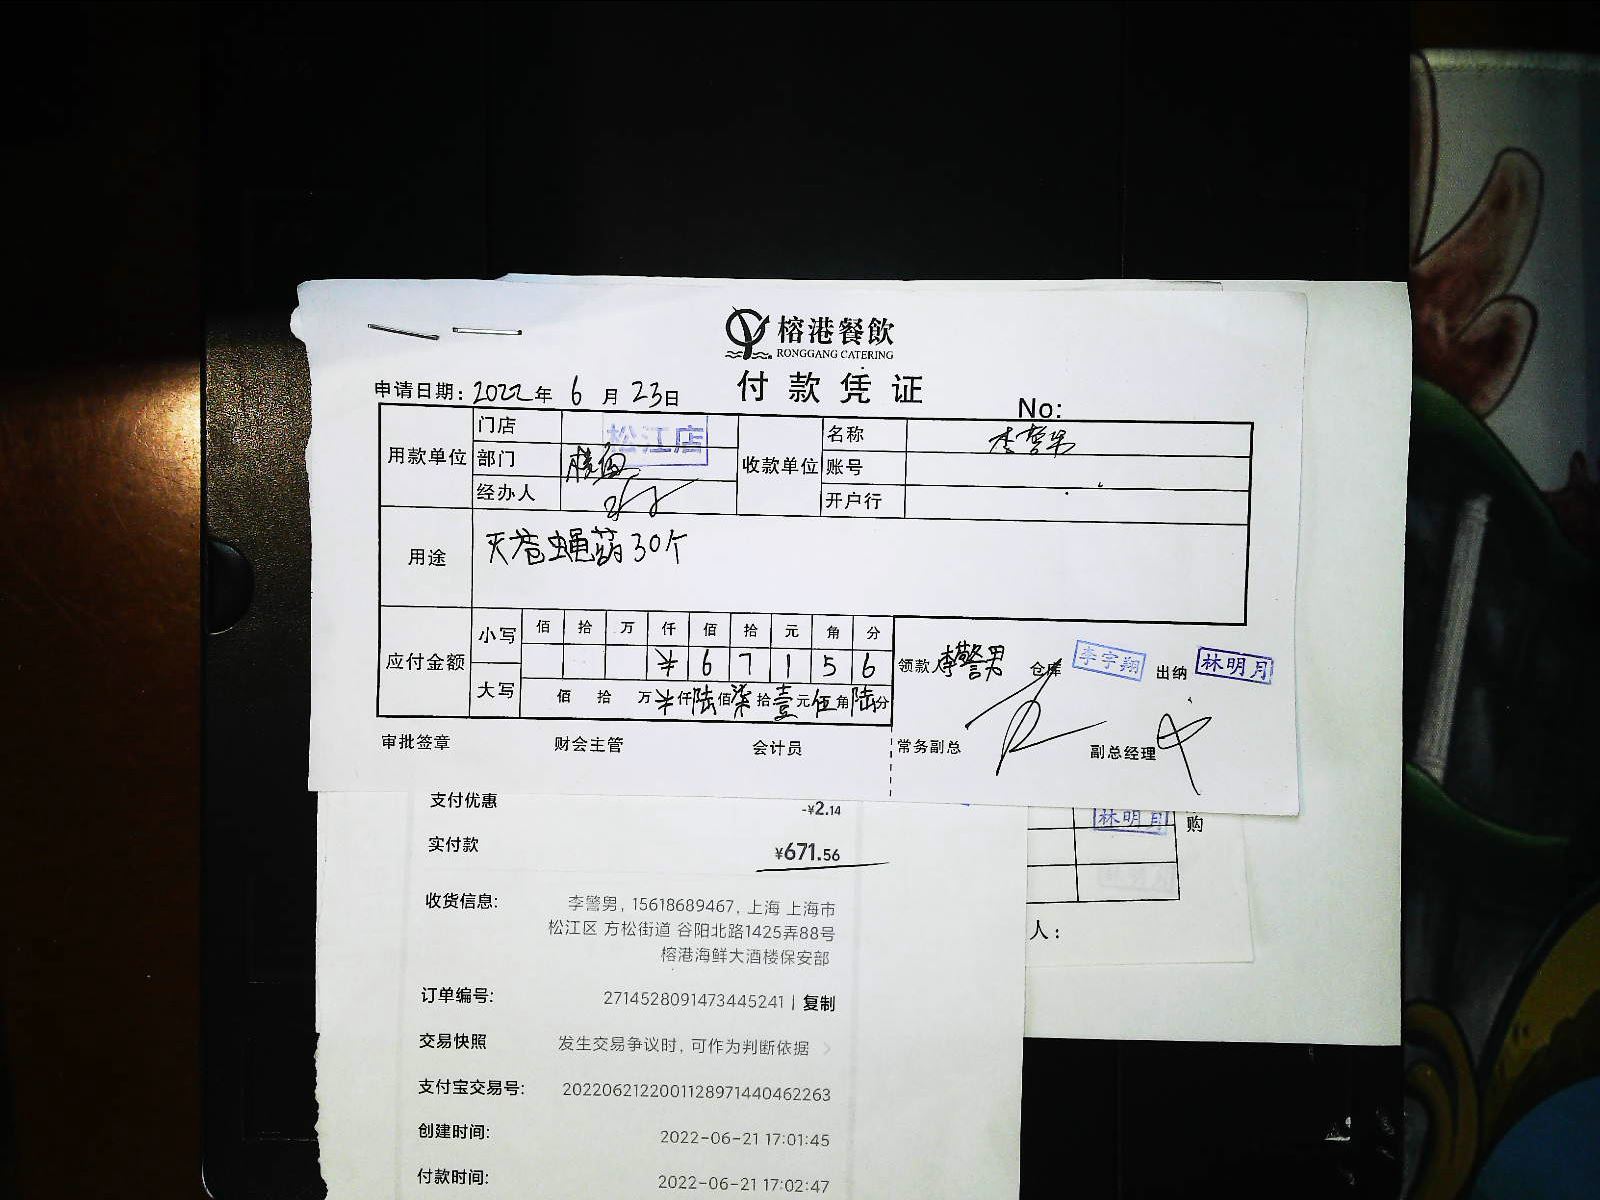 榕港餐飲
RONGGANG CATERING
付款凭证
申请日期: 2022年 6月 23日
No:
用款单位 门店 松江店
部门
经办人
收款单位 名称 李警男
账号
开户行
用途 灭苍蝇药30个
应付金额 小写 佰 拾 万 仟 佰 拾 元 角 分
¥ 6 7 1 5 6
大写 佰 拾 万 仟陆佰柒拾壹元伍角陆分
领款人 李警男 仓库 李宇翔 出纳 林明月
审批签章 财会主管 会计员 常务副总 副总经理
支付优惠 -¥2.14
林明月 购
实付款 ¥671.56
人:
收货信息: 李警男, 15618689467, 上海 上海市
松江区 方松街道 谷阳北路1425弄88号
榕港海鲜大酒楼保安部
订单编号: 2714528091473445241 | 复制
交易快照 发生交易争议时, 可作为判断依据 >
支付宝交易号: 2022062122001128971440462263
创建时间: 2022-06-21 17:01:45
付款时间: 2022-06-21 17:02:47